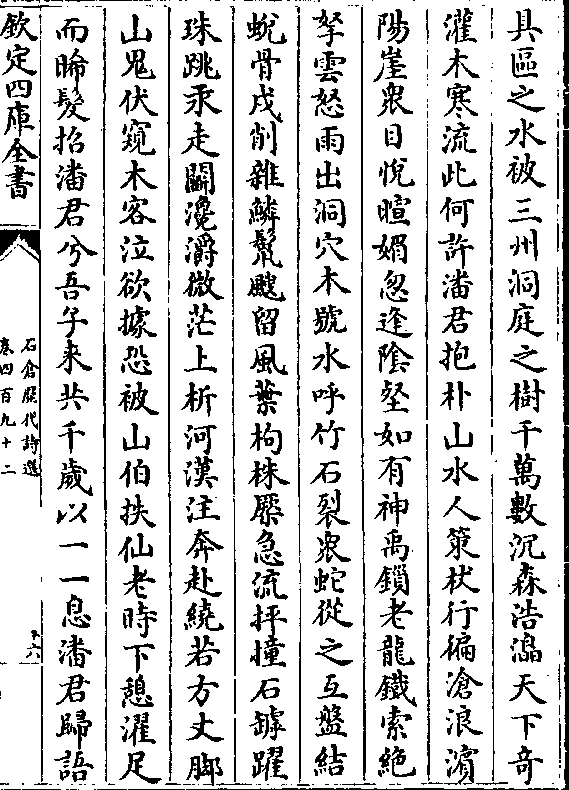 具區之水被三州洞庭之樹千萬數沉森浩瀛天下奇
灌木寒流此何許潘君抱朴山水人策杖行徧滄浪濱
陽崖衆目悅暄媚忽逢陰壑如有神禹鎖老龍鐵索絶
拏雲怒雨出洞穴木號水呼竹石裂衆蛇從之互盤結
蛻骨戍削雜鱗鬛颼留風葉枸株壓急流抨撞石罅躍
珠跳汞走鬭瀺灂微茫上析河漢注奔赴繞若方丈脚
山鬼伏窺木客泣欲據恐被山伯扶仙老時下憩濯足
而晞髮招潘君兮吾子来共千歲以一一息潘君歸語
欽定四庫全書
石倉歷代詩選
卷四百九十二
六